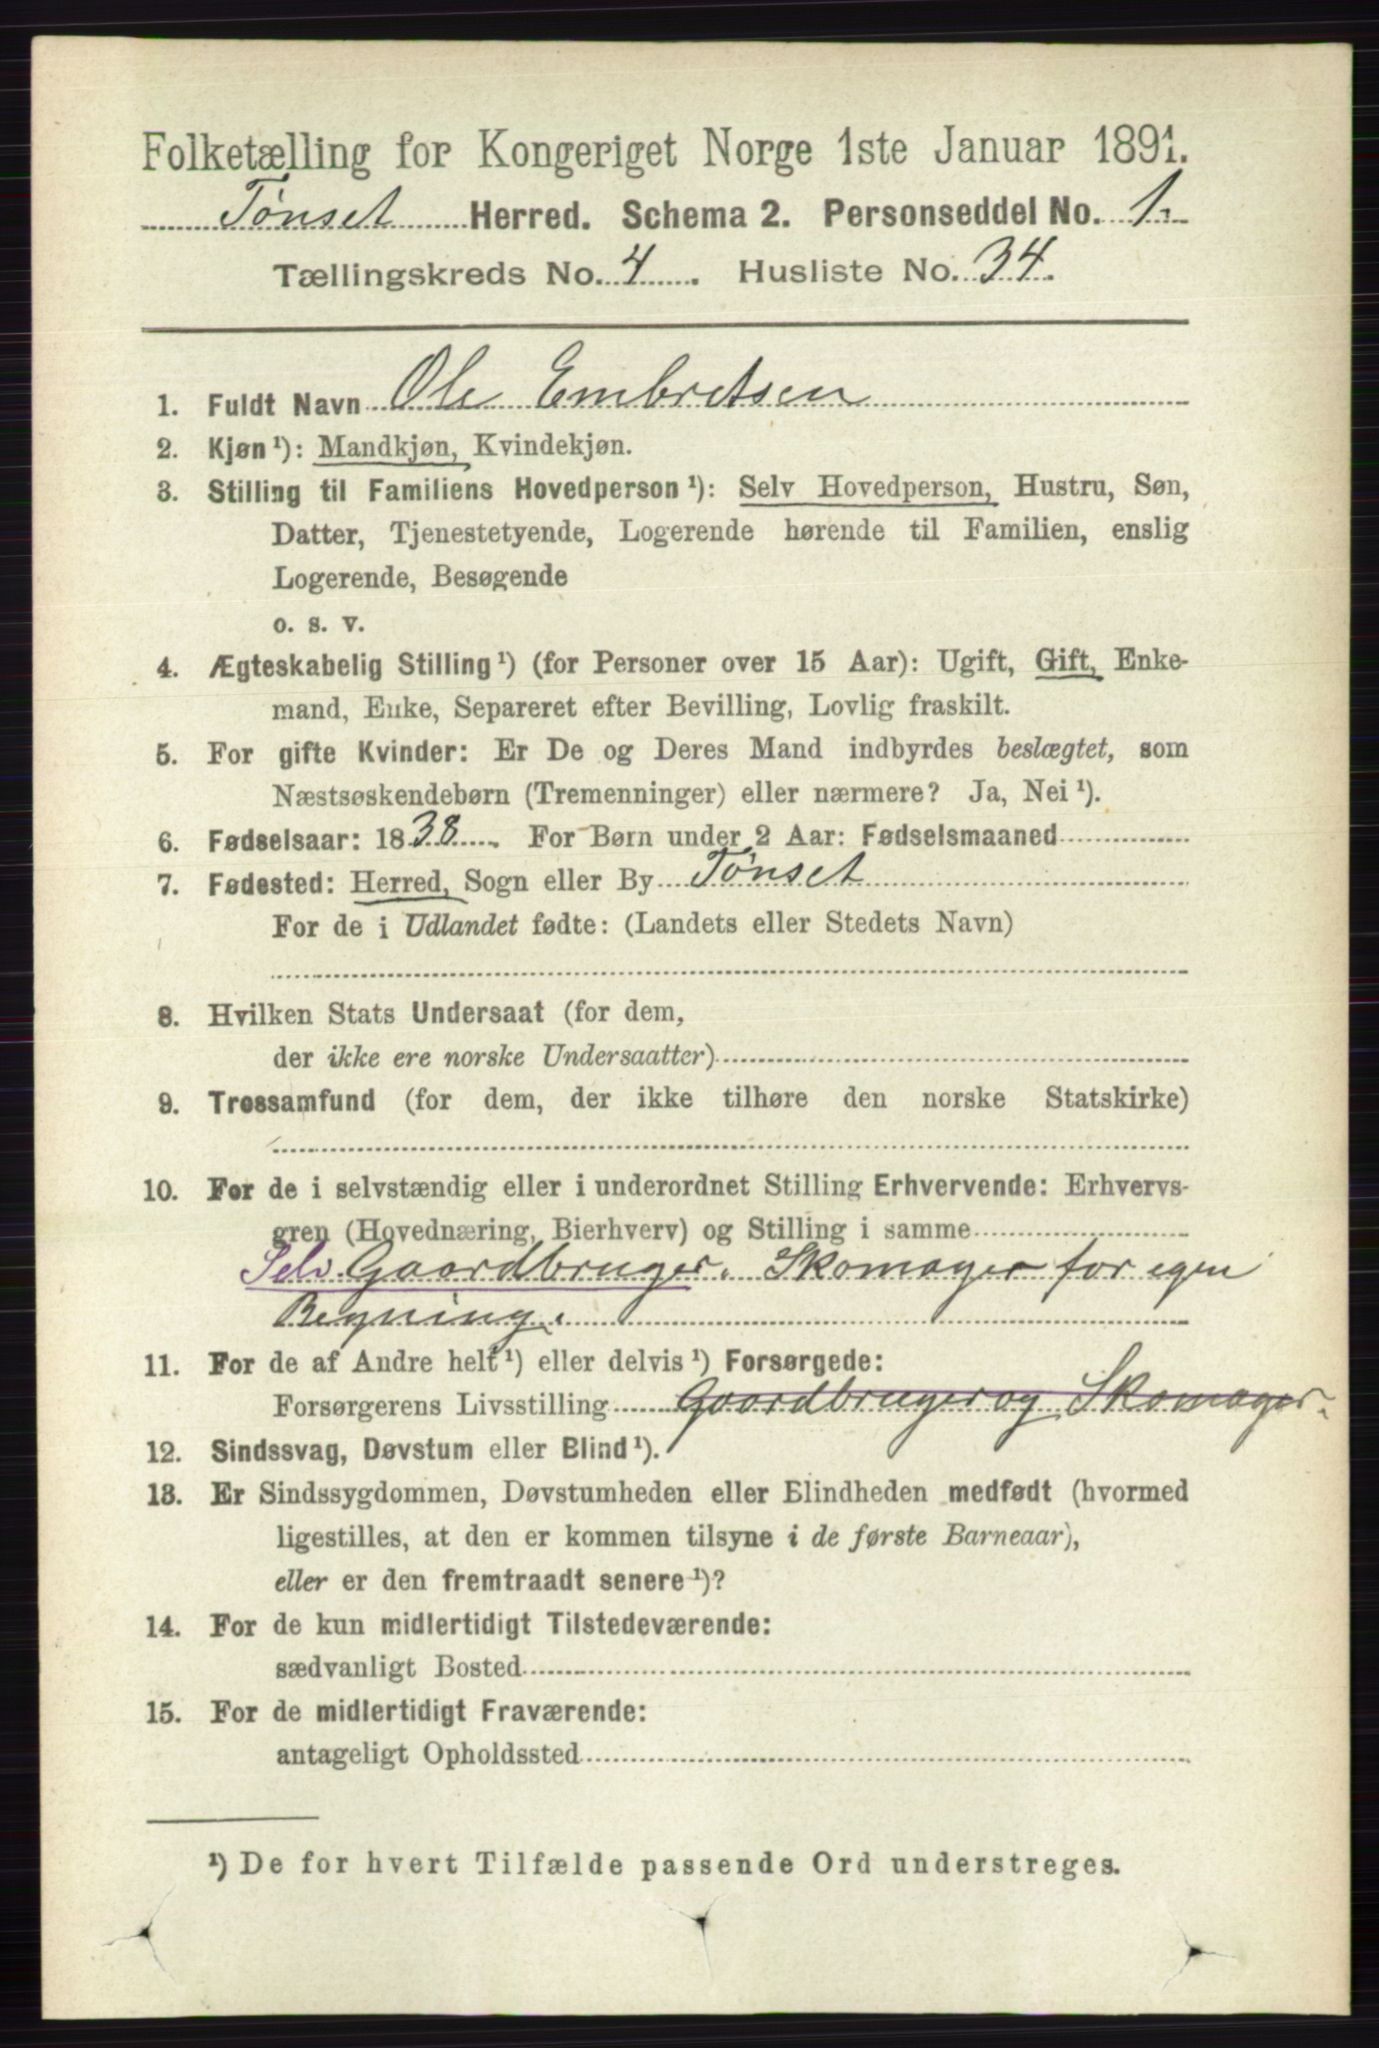 Folketælling for Kongeriget Norge 1ste Januar 1891.
Tønset Herred. Schema 2. Personseddel No. 1.
Tællingskreds No. 4. Husliste No. 34.
1. Fuldt Navn Ole Embretsen
2. Kjøn¹): Mandkjøn, Kvindekjøn.
3. Stilling til Familiens Hovedperson¹): Selv Hovedperson, Hustru, Søn,
Datter, Tjenestetyende, Logerende hørende til Familien, enslig
Logerende, Besøgende
o. s. v.
4. Ægteskabelig Stilling¹) (for Personer over 15 Aar): Ugift, Gift, Enke-
mand, Enke, Separeret efter Bevilling, Lovlig fraskilt.
5. For gifte Kvinder: Er De og Deres Mand indbyrdes beslægtet, som
Næstsøskendebørn (Tremenninger) eller nærmere? Ja, Nei¹).
6. Fødselsaar: 1838. For Børn under 2 Aar: Fødselsmaaned
7. Fødested: Herred, Sogn eller By Tønset
For de i Udlandet fødte: (Landets eller Stedets Navn)
8. Hvilken Stats Undersaat (for dem,
der ikke ere norske Undersaatter)
9. Trossamfund (for dem, der ikke tilhøre den norske Statskirke)
10. For de i selvstændig eller i underordnet Stilling Erhvervende: Erhvervs-
gren (Hovednæring, Bierhverv) og Stilling i samme
Selv Gaardbruger. Skomager for egen
Regning.
11. For de af Andre helt¹) eller delvis¹) Forsørgede:
Forsørgerens Livsstilling Gaardbruger og Skomager.
12. Sindssvag, Døvstum eller Blind¹).
13. Er Sindssygdommen, Døvstumheden eller Blindheden medfødt (hvormed
ligestilles, at den er kommen tilsyne i de første Barneaar),
eller er den fremtraadt senere¹)?
14. For de kun midlertidigt Tilstedeværende:
sædvanligt Bosted
15. For de midlertidigt Fraværende:
antageligt Opholdssted
¹) De for hvert Tilfælde passende Ord understreges.